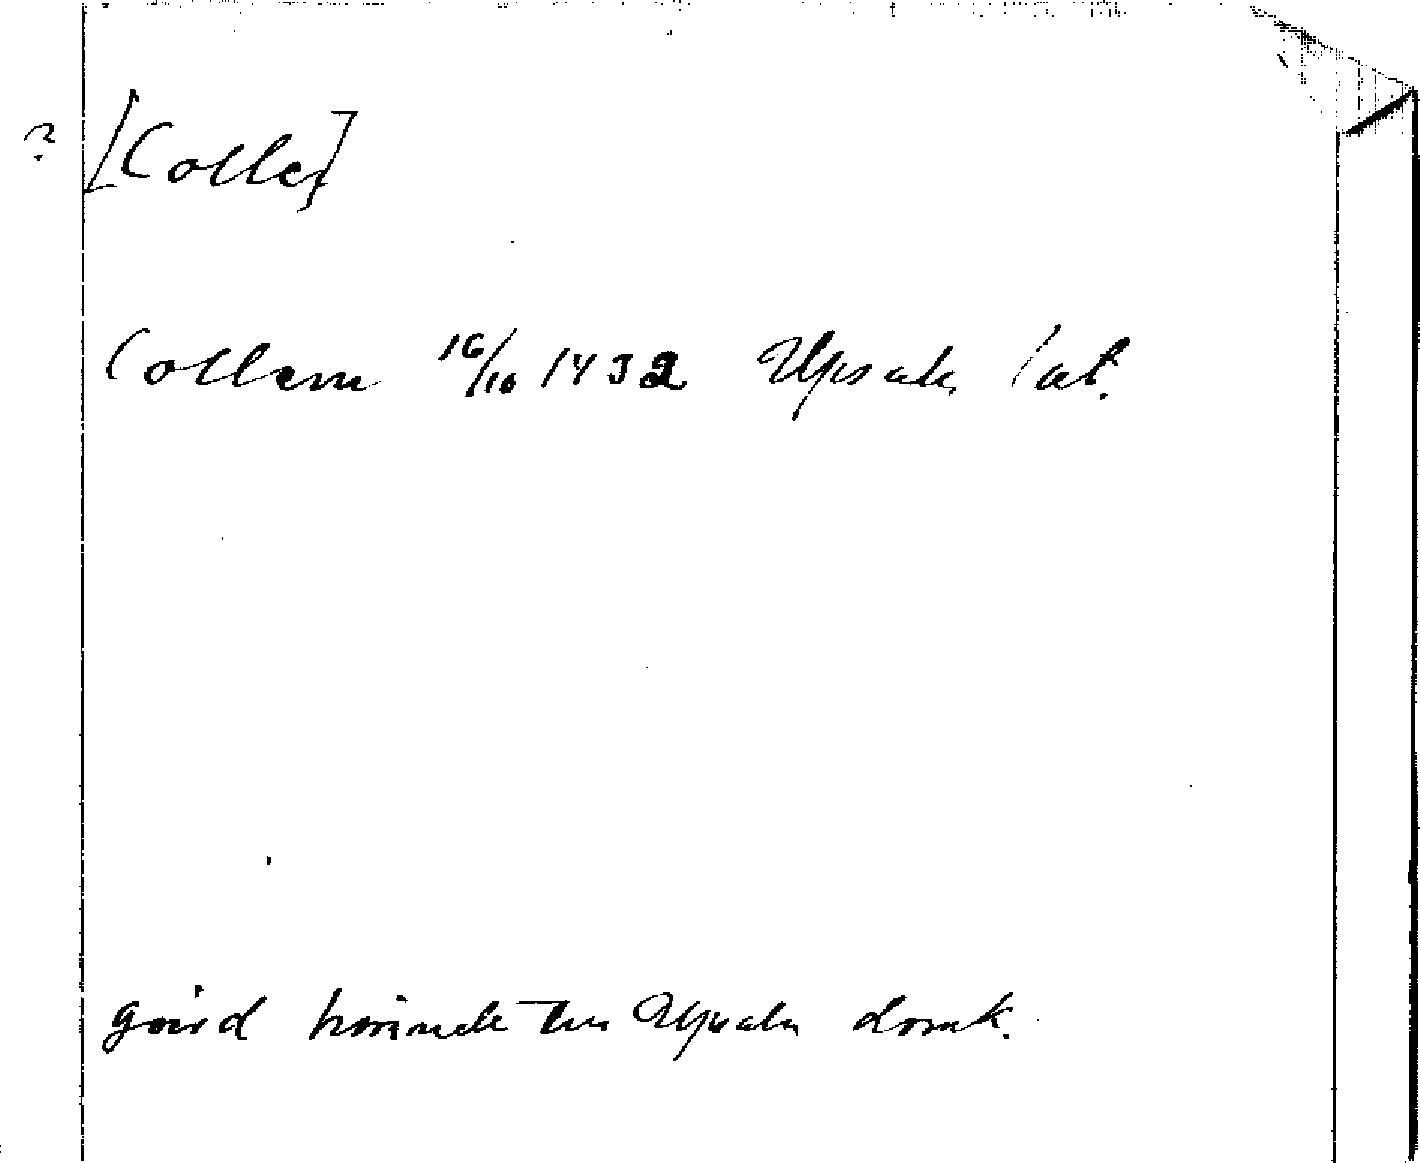 ? [Colle]
Collem 16/10 1432 Upsala lat.
gård hörande till Upsala domk.